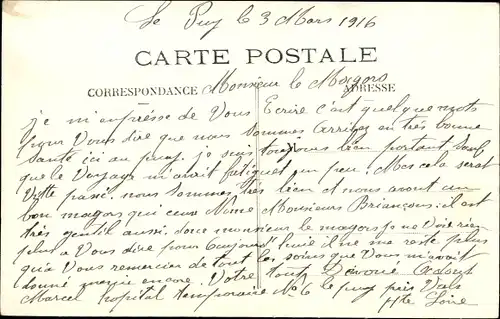 Le Puy le 3 Mars 1916
CARTE POSTALE
CORRESPONDANCE ADRESSE
Monsieur le Magors
je m'empresse de Vous Ecrire c'est quelque mots
pour Vous dire que nous sommes arrivez en très bonne
Santé ici au puy. je suis toujours bien portant sauf
que le Voyage m'avait fatiguet un peu. Mes cela serat
Vitte passé. nous sommes très bien et nous avont un
bon magors qui ceux Nome Monsieur Briançons. il est
très gentil aussi. donc monsieur le magors je ne Voie riez
plus a Vous dire pour aujourd'huie il ne me reste plus
qu'a Vous remercier de tout les soires que Vous m'avait
donné encore. Votre tout Devoué
Marcel hopital temporaire No 6 le puy près Vals
Hte Loire